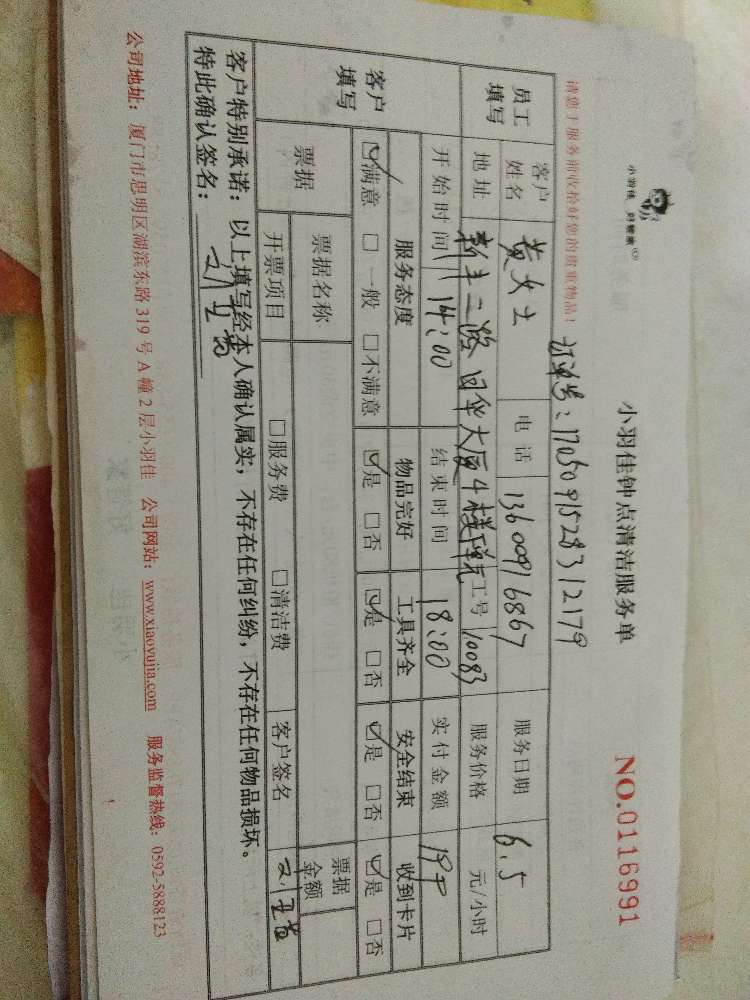 小羽佳 好管家
小羽佳钟点清洁服务单
NO.0116991
请您于服务前收拾好您的贵重物品！
订单号：1705091528312179
员工填写 客户姓名 黄女士 电话 13600916867 服务日期 6.5
地址 新丰二路日华大厦4楼 单元 工号 10083 服务价格 元/小时
开始时间 14:00 结束时间 18:00 实付金额
客户填写 服务态度 物品完好 工具齐全 安全结束 收到卡片
☑满意 □一般 □不满意 ☑是 □否 ☑是 □否 ☑是 □否 ☑是 □否
票据 票据名称 票据金额
开票项目 □服务费 □清洁费 客户签名
客户特别承诺：以上填写经本人确认属实，不存在任何纠纷，不存在任何物品损坏。
特此确认签名：
公司地址：厦门市思明区湖滨东路319号A幢2层小羽佳 公司网站：www.xiaoyujia.com 服务监督热线：0592-5888123